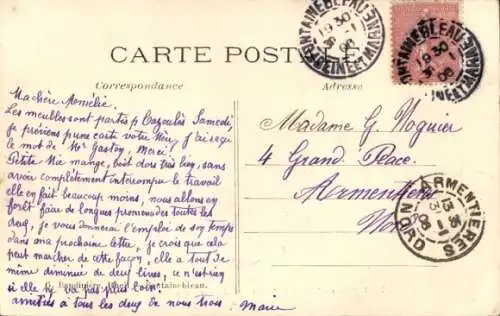 CARTE POSTALE
Correspondance
Adresse
FONTAINEBLEAU
19 30
31 -1
06
SEINE ET MARNE
FONTAINEBLEAU
19 30
31 -1
06
SEINE ET MARNE
Ma chère Amélie.
Les meubles sont partis p Cazoulès Samedi,
je préviens p une carte votre J'ai reçu
le mot de Mr Gaston, Merci.
Petite Mie mange, boit dors très bien, sans
avoir complètement interrompu le travail
elle en fait beaucoup moins, nous allons en
forêt faire de longues promenades toutes les
deux, je vous donnerai l'emploi de son temps
dans ma prochaine lettre, je crois que cela
peut marcher de cette façon, elle a tout de
même diminué de deux livres, ce n'est rien
si elle n'y va pas plus loin.
amitiés à tous les deux de nous trois. Marie
Madame G. Noguier
4 Grand Place.
Armentières
Nord
ARMENTIÈRES
NORD
Fontainebleau.